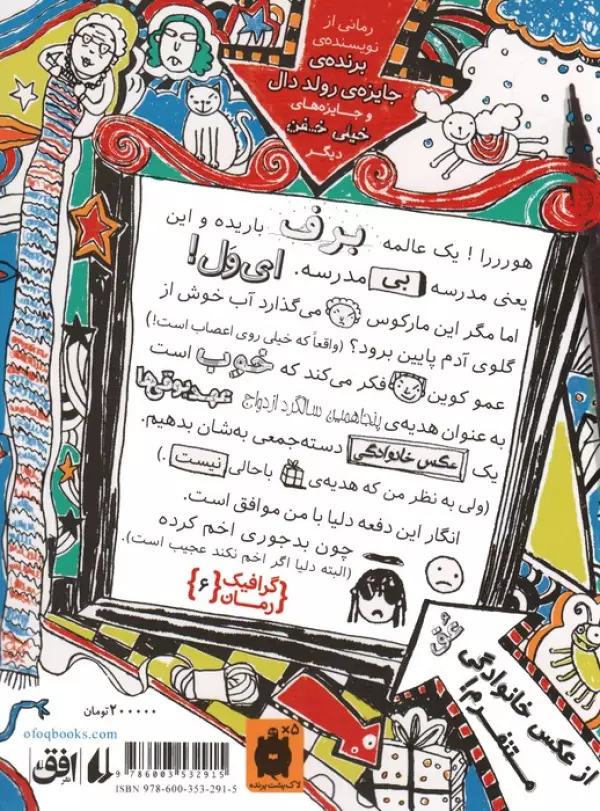 رمانی از
نویسنده‌ی
برنده‌ی
جایزه‌ی رولد دال
و جایزه‌های
خیلی خفن
دیگر
هوررررا! یک عالمه برف باریده و این
یعنی مدرسه بی مدرسه. ای‌وَل!
اما مگر این مارکوس می‌گذارد آب خوش از
گلوی آدم پایین برود؟ (واقعاً که خیلی روی اعصاب است!)
عمو کوین فکر می‌کند که خوب است
به عنوان هدیه‌ی پنجاهمین سالگرد ازدواج عهدبوقی‌ها
یک عکس خانوادگی دسته‌جمعی به‌شان بدهیم.
(ولی به نظر من که هدیه‌ی باحالی نیست.)
انگار این دفعه دلیا با من موافق است.
چون بدجوری اخم کرده
(البته دلیا اگر اخم نکند عجیب است).
{گرافیک رمان} {۶}
از عکس خانوادگی
متنفرم!
عُق
۲۰۰۰۰۰ تومان
ofoqbooks.com
نشر افق
9 786003 532915
ISBN 978-600-353-291-5
×۵
لاک‌پشت پرنده